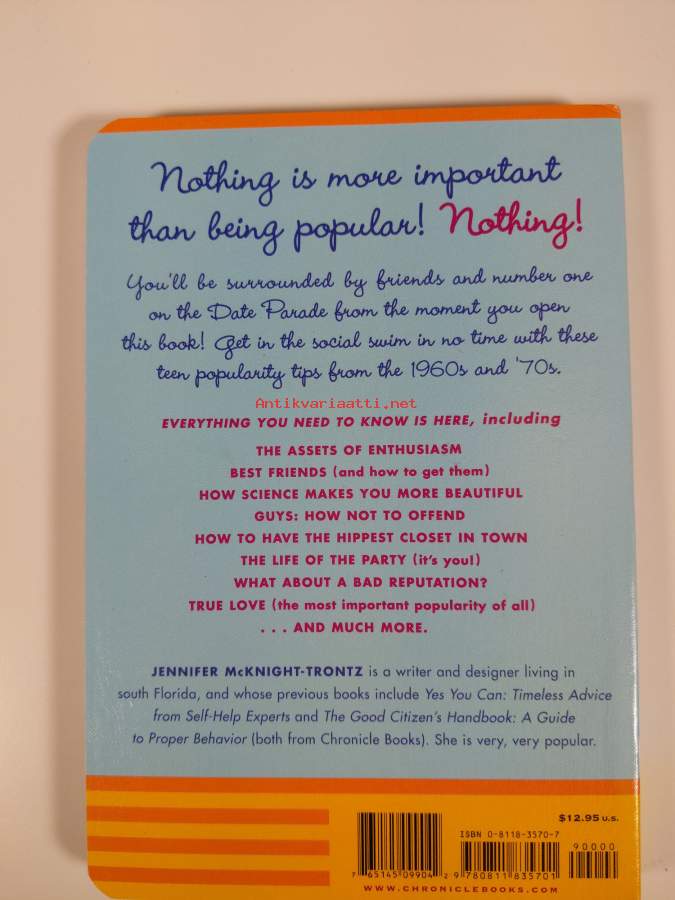 Nothing is more important
than being popular! Nothing!
You'll be surrounded by friends and number one
on the Date Parade from the moment you open
this book! Get in the social swim in no time with these
teen popularity tips from the 1960s and '70s.
Antikvariaatti.net
EVERYTHING YOU NEED TO KNOW IS HERE, including
THE ASSETS OF ENTHUSIASM
BEST FRIENDS (and how to get them)
HOW SCIENCE MAKES YOU MORE BEAUTIFUL
GUYS: HOW NOT TO OFFEND
HOW TO HAVE THE HIPPEST CLOSET IN TOWN
THE LIFE OF THE PARTY (it's you!)
WHAT ABOUT A BAD REPUTATION?
TRUE LOVE (the most important popularity of all)
. . . AND MUCH MORE.
JENNIFER McKNIGHT-TRONTZ is a writer and designer living in
south Florida, and whose previous books include Yes You Can: Timeless Advice
from Self-Help Experts and The Good Citizen's Handbook: A Guide
to Proper Behavior (both from Chronicle Books). She is very, very popular.
$12.95 U.S.
ISBN 0-8118-3570-7
90000
7 65145 09904 2
9 780811 835701
WWW.CHRONICLEBOOKS.COM